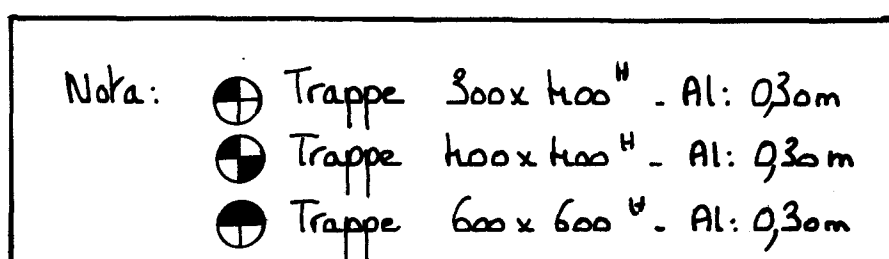 Nota: Trappe 300x400ᴴ - Al: 0,30m
Trappe 400x400ᴴ - Al: 0,30m
Trappe 600x600ᴴ - Al: 0,30m